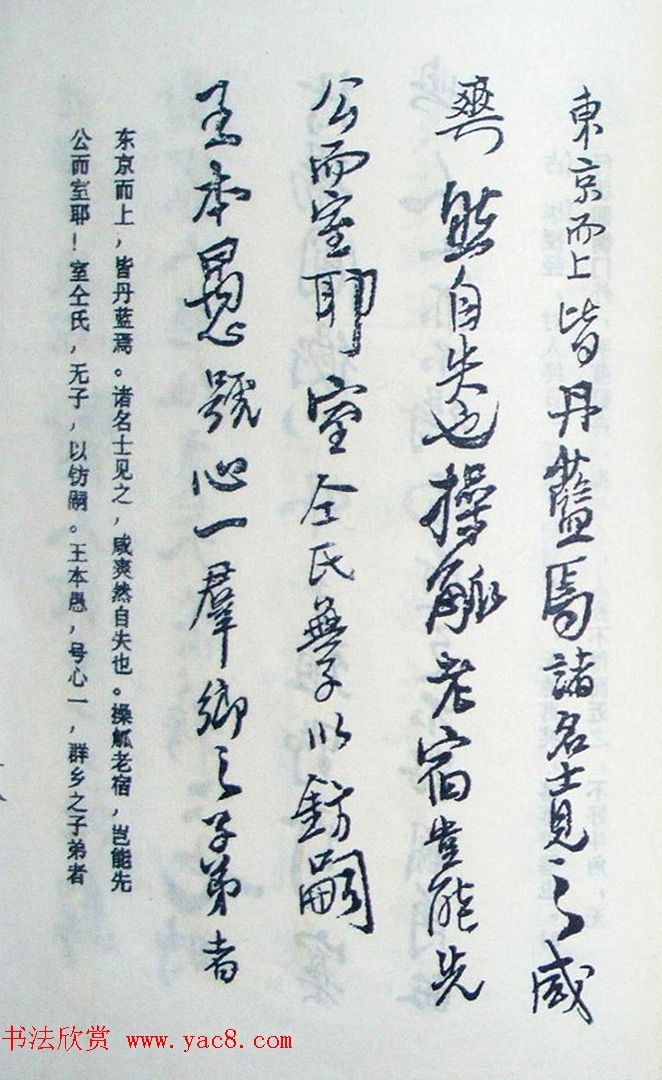 東京而上皆丹藍焉諸名士見之咸
爽然自失也操觚老宿豈能先
公而室耶室仝氏無子以鈁嗣
王本愚號心一羣鄉之子弟者
东京而上，皆丹蓝焉。诸名士见之，咸爽然自失也。操觚老宿，岂能先
公而室耶！室仝氏，无子，以钫嗣。王本愚，号心一，群乡之子弟者
书法欣赏 www.yac8.com